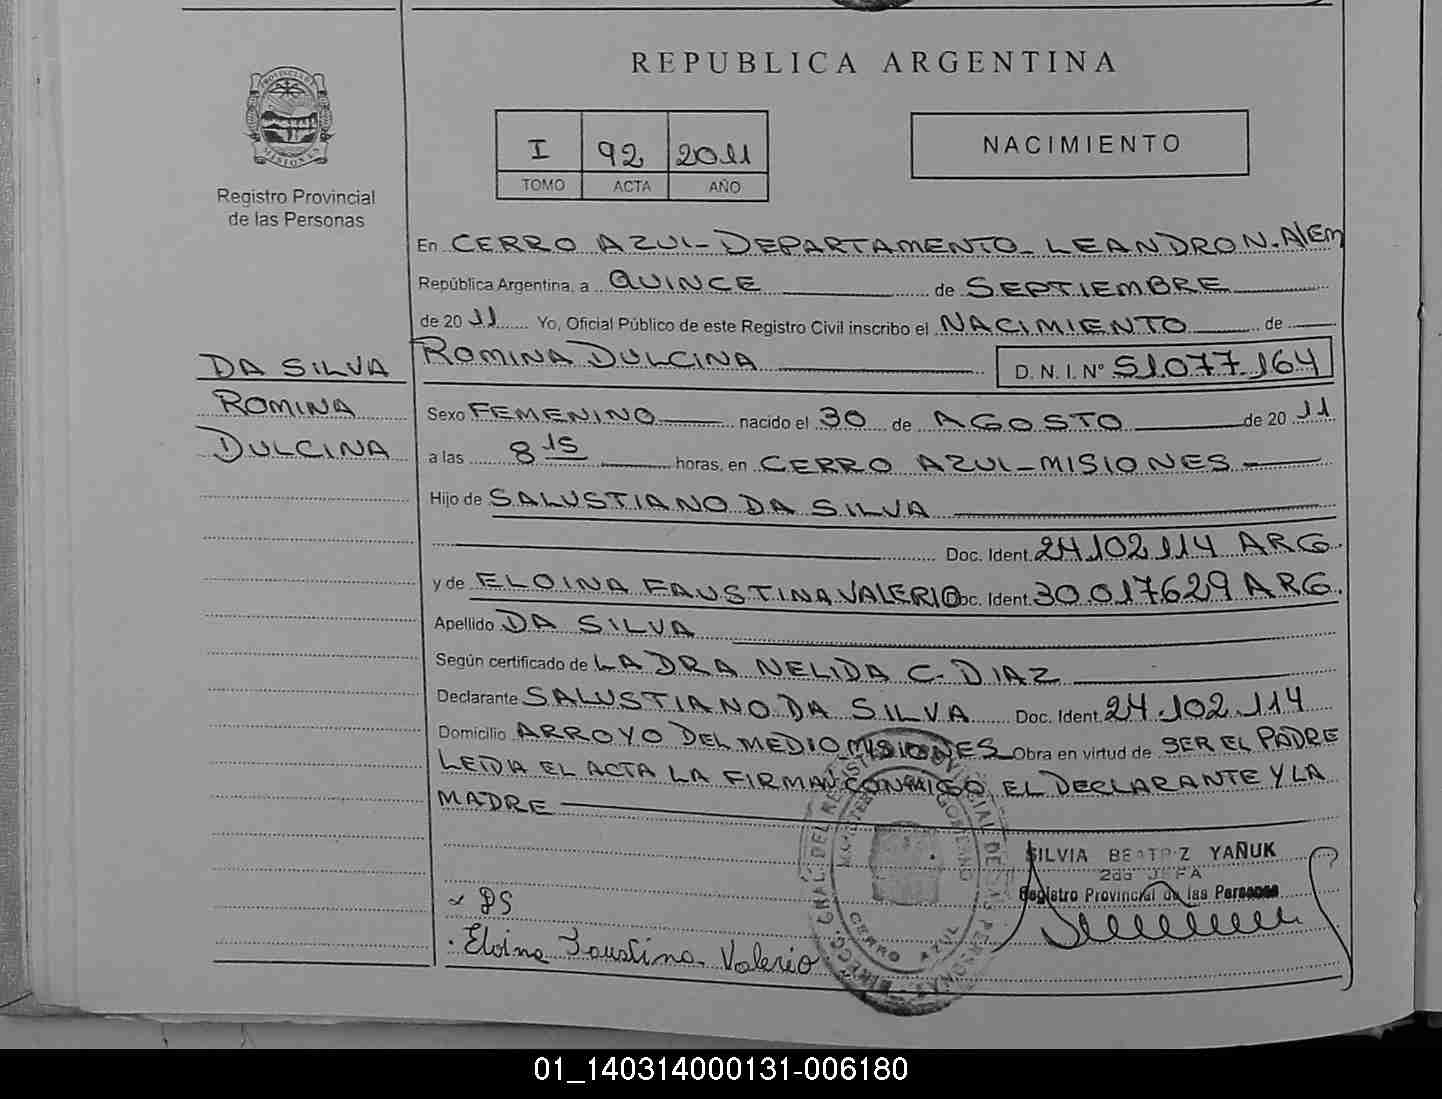 REPUBLICA ARGENTINA
PROVINCIA DE
MISIONES
Registro Provincial
de las Personas
I 92 2011
TOMO ACTA AÑO
NACIMIENTO
En CERRO AZUL - DEPARTAMENTO - LEANDRO N. Alem
República Argentina, a QUINCE de SEPTIEMBRE
de 2011 Yo, Oficial Público de este Registro Civil inscribo el NACIMIENTO de
ROMINA DULCINA D. N. I. Nº 51.077.164
DA SILVA
ROMINA
DULCINA
Sexo FEMENINO nacido el 30 de AGOSTO de 2011
a las 8 15 horas, en CERRO AZUL - MISIONES
Hijo de SALUSTIANO DA SILVA
Doc. Ident. 24.102.114 ARG.
y de ELOINA FAUSTINA VALERIO Doc. Ident. 30.017629 ARG.
Apellido DA SILVA
Según certificado de LA DRA NELIDA C. DIAZ
Declarante SALUSTIANO DA SILVA Doc. Ident. 24.102.114
Domicilio ARROYO DEL MEDIO MISIONES Obra en virtud de SER EL PADRE
LEIDA EL ACTA LA FIRMAN CONMIGO EL DECLARANTE Y LA
MADRE
SILVIA BEATRIZ YAÑUK
2da JEFA
Registro Provincial de las Personas
DS
Eloina Faustina Valerio
CERRO AZUL
01_140314000131-006180